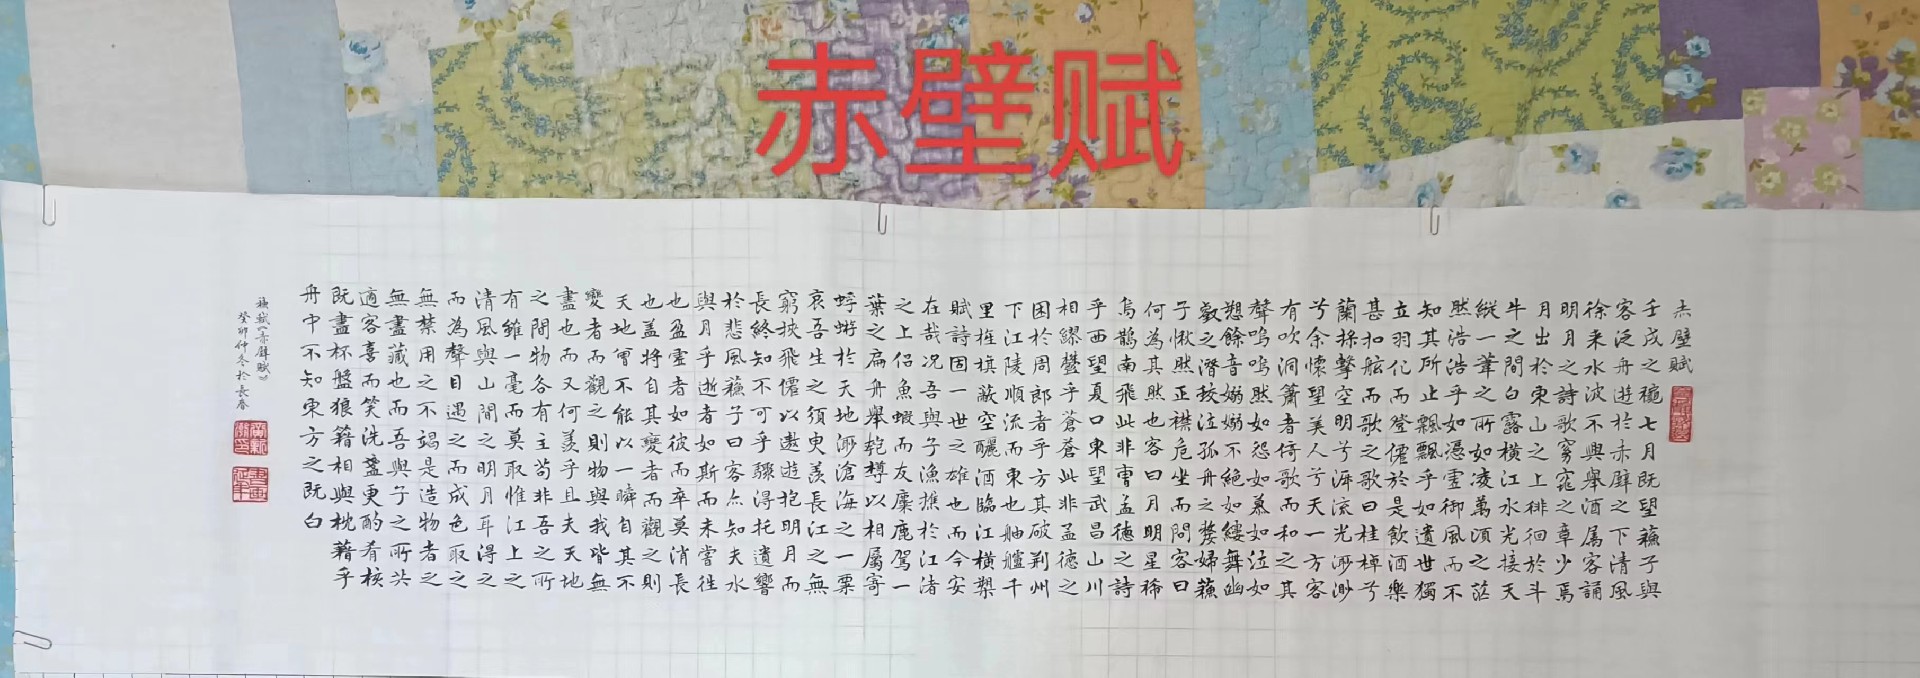 赤壁赋
赤壁賦
壬戌之穐七月既望蘓子與
客泛舟遊於赤壁之下清風
徐来水波不興舉酒属客誦
明月之詩歌窈窕之章少焉
月出於東山之上徘徊於斗
牛之間白露橫江水光接天
縱一葦之所如凌萬頃之茫
然浩浩乎如憑虛御風而不
知其所止飄飄乎如遺世獨
立羽化而登僊於是飲酒樂
甚扣舷而歌之歌曰桂棹兮
蘭槳擊空明兮泝流光渺渺
兮余懷望美人兮天一方客
有吹洞簫者倚歌而和之其
聲嗚嗚然如怨如慕如泣如
愬餘音嫋嫋不絕如縷舞幽
壑之潛蛟泣孤舟之嫠婦蘓
子愀然正襟危坐而問客曰
何為其然也客曰月明星稀
烏鵲南飛此非曹孟德之詩
乎西望夏口東望武昌山川
相繆鬱乎蒼蒼此非孟德之
困於周郎者乎方其破荆州
下江陵順流而東也舳艫千
里旌旗蔽空釃酒臨江橫槊
賦詩固一世之雄也而今安
在哉況吾與子漁樵於江渚
之上侶魚蝦而友麋鹿駕一
葉之扁舟舉匏樽以相屬寄
蜉蝣於天地渺滄海之一粟
哀吾生之須臾羨長江之無
窮挾飛僊以遨遊抱明月而
長終知不可乎驟得托遺響
於悲風蘓子曰客亦知夫水
與月乎逝者如斯而未嘗往
也盈虛者如彼而卒莫消長
也盖將自其變者而觀之則
天地曾不能以一瞬自其不
變者而觀之則物與我皆無
盡也而又何羨乎且夫天地
之間物各有主苟非吾之所
有雖一毫而莫取惟江上之
清風與山間之明月耳得之
而為聲目遇之而成色取之
無禁用之不竭是造物者之
無盡藏也而吾與子之所共
適客喜而笑洗盞更酌肴核
既盡杯盤狼籍相與枕藉乎
舟中不知東方之既白
蘓軾《赤壁賦》
癸卯仲冬於長春